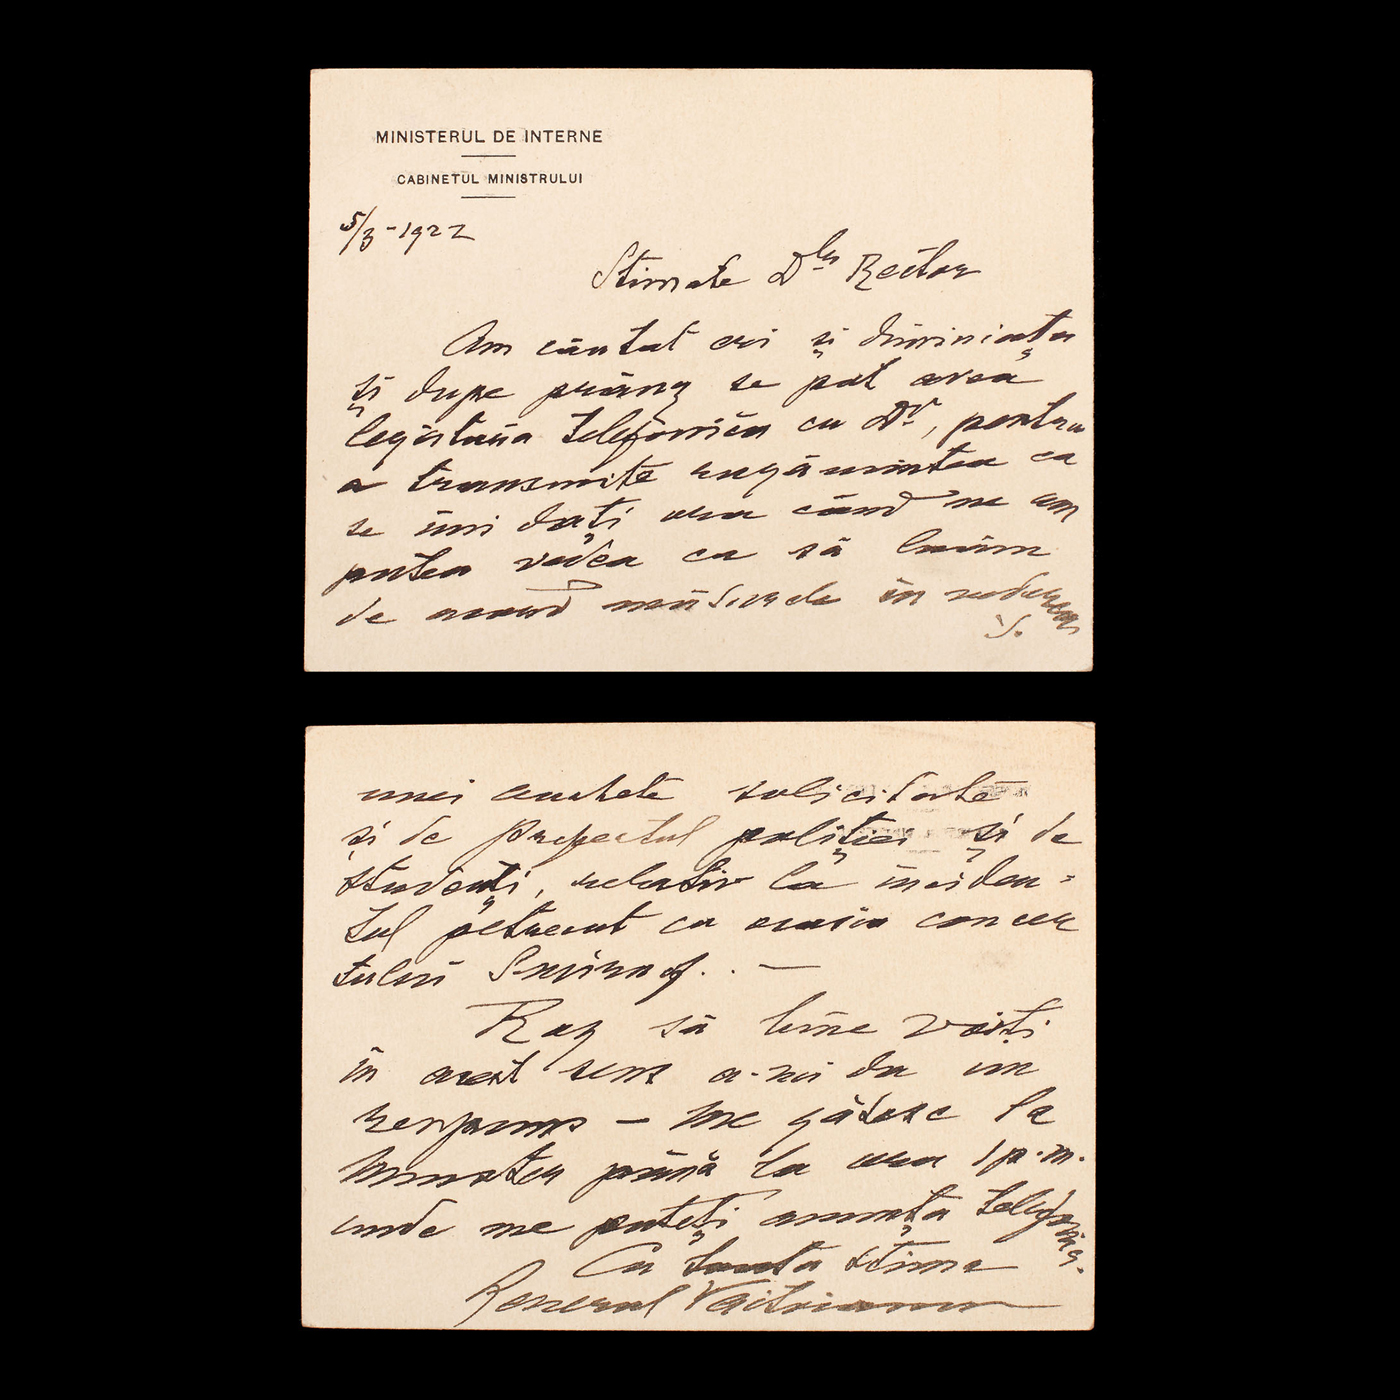 MINISTERUL DE INTERNE
CABINETUL MINISTRULUI
5/3-1922
Stimate Dle Rector
Am căutat eri și dimineața
și dupe prânz se pot avea
legătura telefonica cu Dv., pentru
a transmite rugămintea ca
se îmi dați ora când ne am
putea vedea ca să luăm
de acord măsurele în vederea
unei anchete solicitate
și de Prefectul poliției și de
studenți, relativ la inciden=
tul petrecut cu ocazia concer
tului Smirnof.. —
Rog să bine voiți
în acest sens a-mi da un
respuns — me găsesc la
Minister până la ora 1 p.m.
unde me puteți anunța telefonic.
Cu toata stima
General Văitoianu